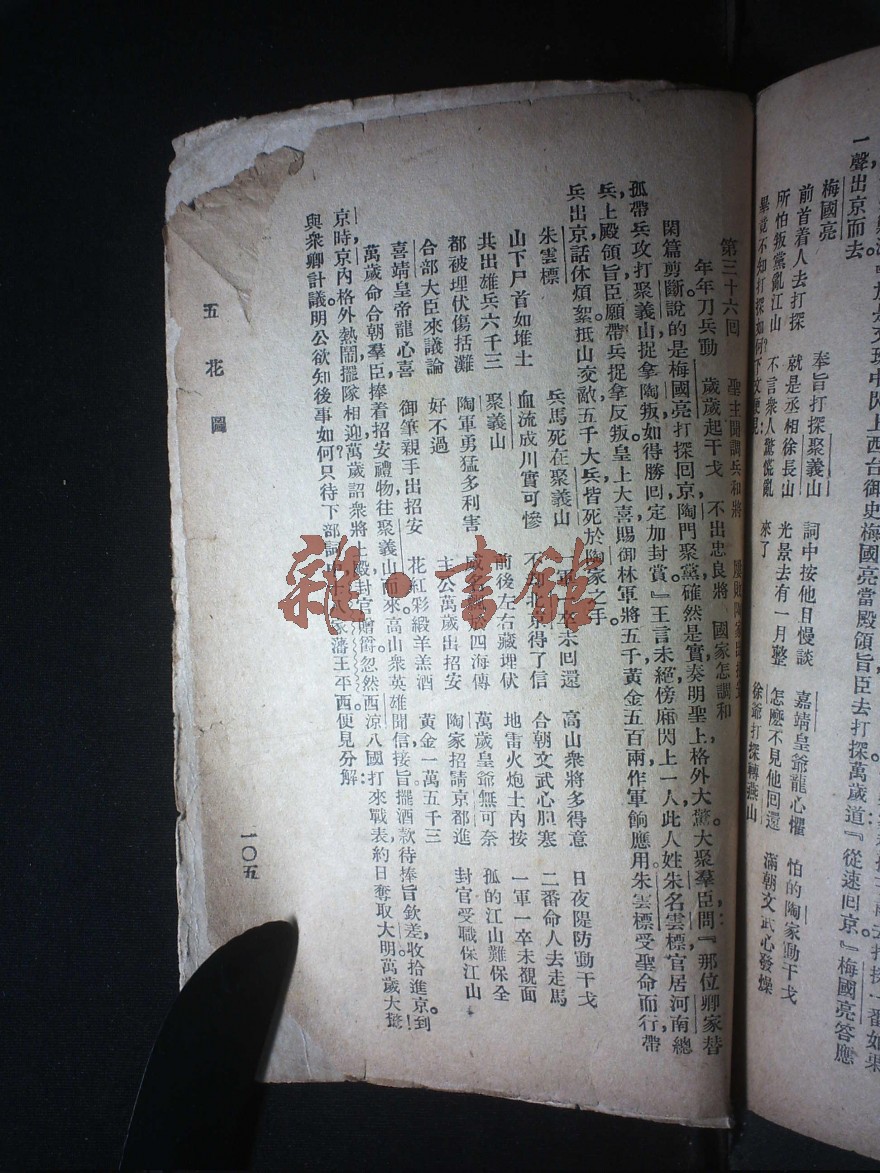 一聲出京而去
梅國亮　奉旨打探聚義山　詞中按他目慢談　嘉靖皇爺龍心懼　怕的陶家動干戈
前首着人去打探　就是丞相徐長山　光景去有一月整　怎麽不見他回還　滿朝文武心發燥
所怕叛黨亂江山　不言衆人驚慌亂　來了　徐爺打探轉燕山
畢竟不知打探如何？下文便見
第三十六回　聖主聞調兵和將
年年刀兵動　歲歲起干戈　不出忠良將　國家怎調和
閑篇剪斷說的是梅國亮打探回京陶門聚黨確然是實奏明聖上格外大驚大聚羣臣問『那位卿家替
孤帶兵攻打聚義山捉拿陶叛如得勝回定加封賞』王言未絕傍廂閃上一人此人姓朱名雲標官居河南總
兵上殿領旨臣願帶兵捉拿反叛皇上大喜賜御林軍將五千黃金五百兩作軍餉應用朱雲標受聖命而行，帶
兵出京話休煩絮抵山交敵五千大兵皆死於陶家之手。
朱雲標　兵馬死在聚義山　一軍一卒未回還　高山衆將多得意　日夜隄防動干戈
山下尸首如堆土　血流成川實可慘　京得了信　合朝文武心胆寒　二番命人去走馬
共出雄兵六千三　聚義山　前後左右藏埋伏　地雷火炮土內按　一軍一卒未覩面
都被埋伏傷括灘　陶軍勇猛多利害　四海傳　萬歲皇爺無可奈　孤的江山難保全
合部大臣來議論　好不過　主公萬歲出招安　陶家招請京都進　封官受職保江山
喜靖皇帝龍心喜　御筆親手出招安　花紅彩緞羊羔酒　黃金一萬五千三
萬歲命合朝羣臣捧着招安禮物往聚義山而來。高山衆英雄聞信接旨擺酒款待捧旨欽差，收拾進京。到
京時京內格外熱鬧擺隊相迎萬歲詔衆將上殿封官贈爵忽然西凉八國打來戰表約日奪取大明萬歲大驚！
與衆卿計議明公欲知後事如何只待下部詞　家藩王平西。便見分解：
五花圖
一〇五
雜·書館